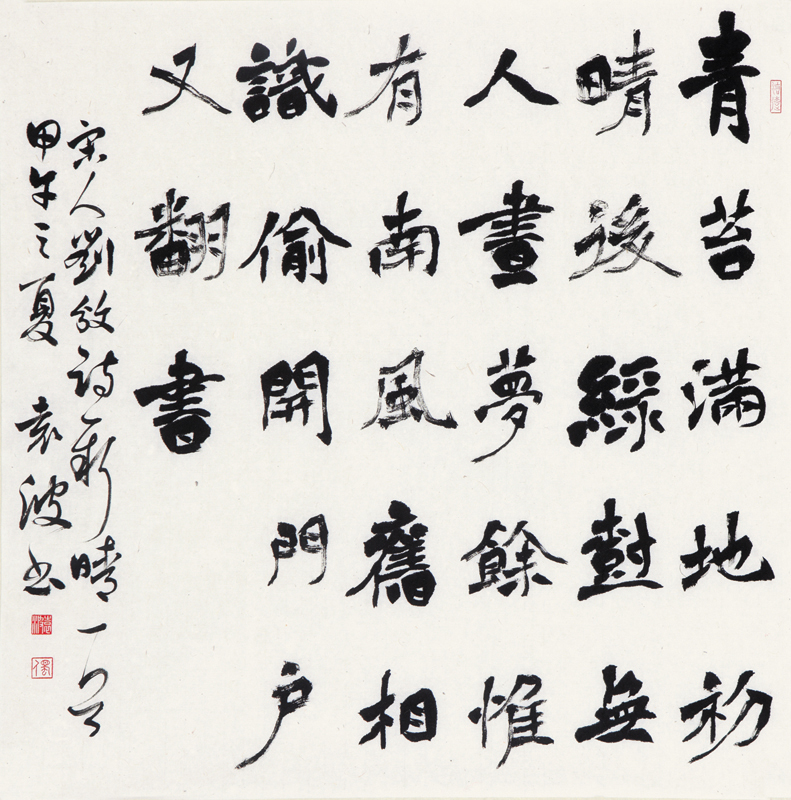 青苔滿地初
晴後綠尌無
人晝夢餘惟
有南風舊相
識偷開門户
又翻書
宋人劉攽詩新晴一首
甲午之夏 袁波书